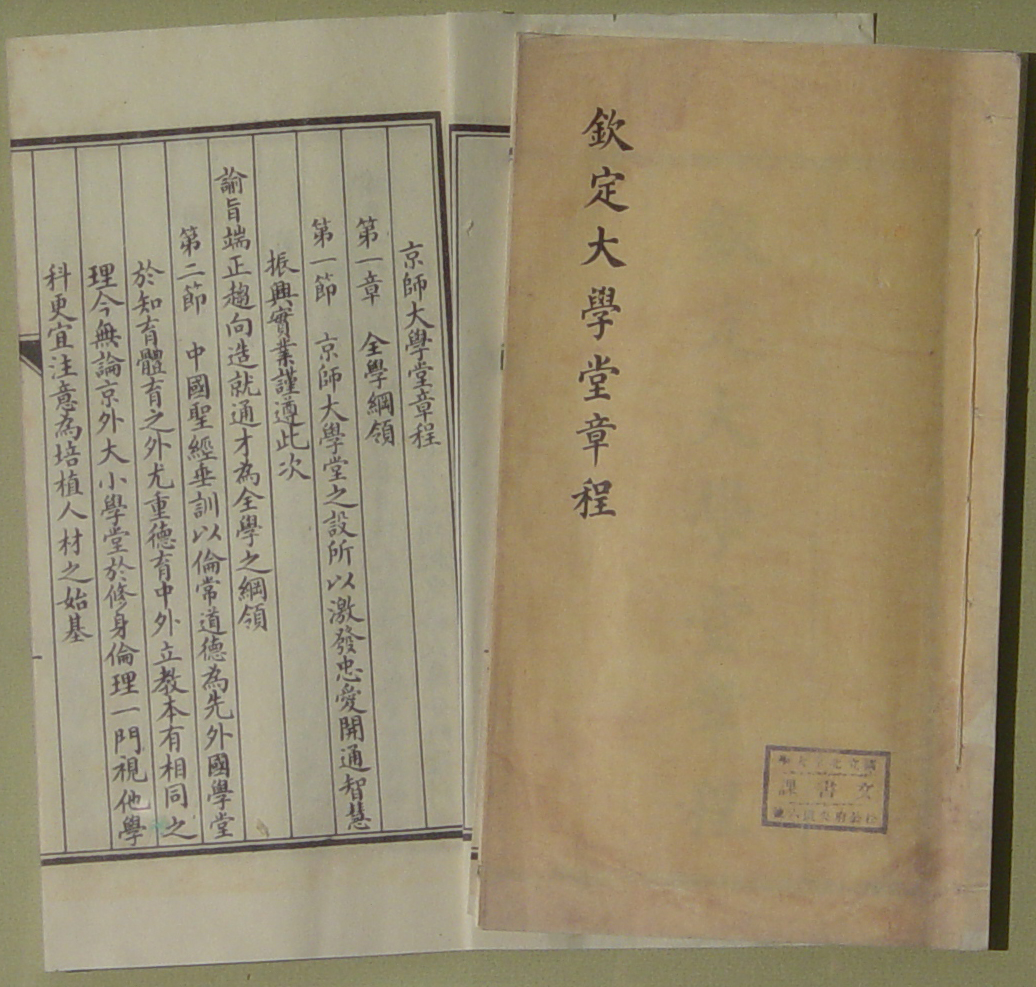 欽定大學堂章程
文書課
京師大學堂章程
第一章　全學綱領
第一節　京師大學堂之設所以激發忠愛開通智慧
振興實業謹遵此次
諭旨端正趨向造就通才為全學之綱領
第二節　中國聖經垂訓以倫常道德為先外國學堂
於知育體育之外尤重德育中外立教本有相同之
理今無論京外大小學堂於修身倫理一門視他學
科更宜注意為培植人材之始基